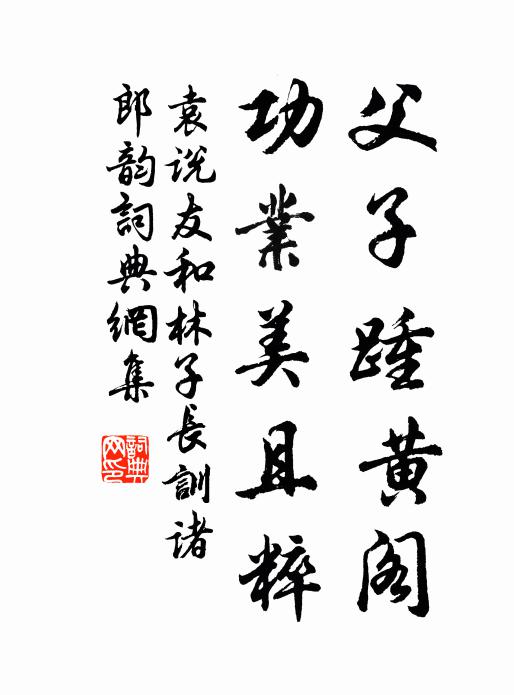 父子踵黄阁
功業美且粹
袁说友和林子長訓诸
郎韵詞典網集
詞典网印